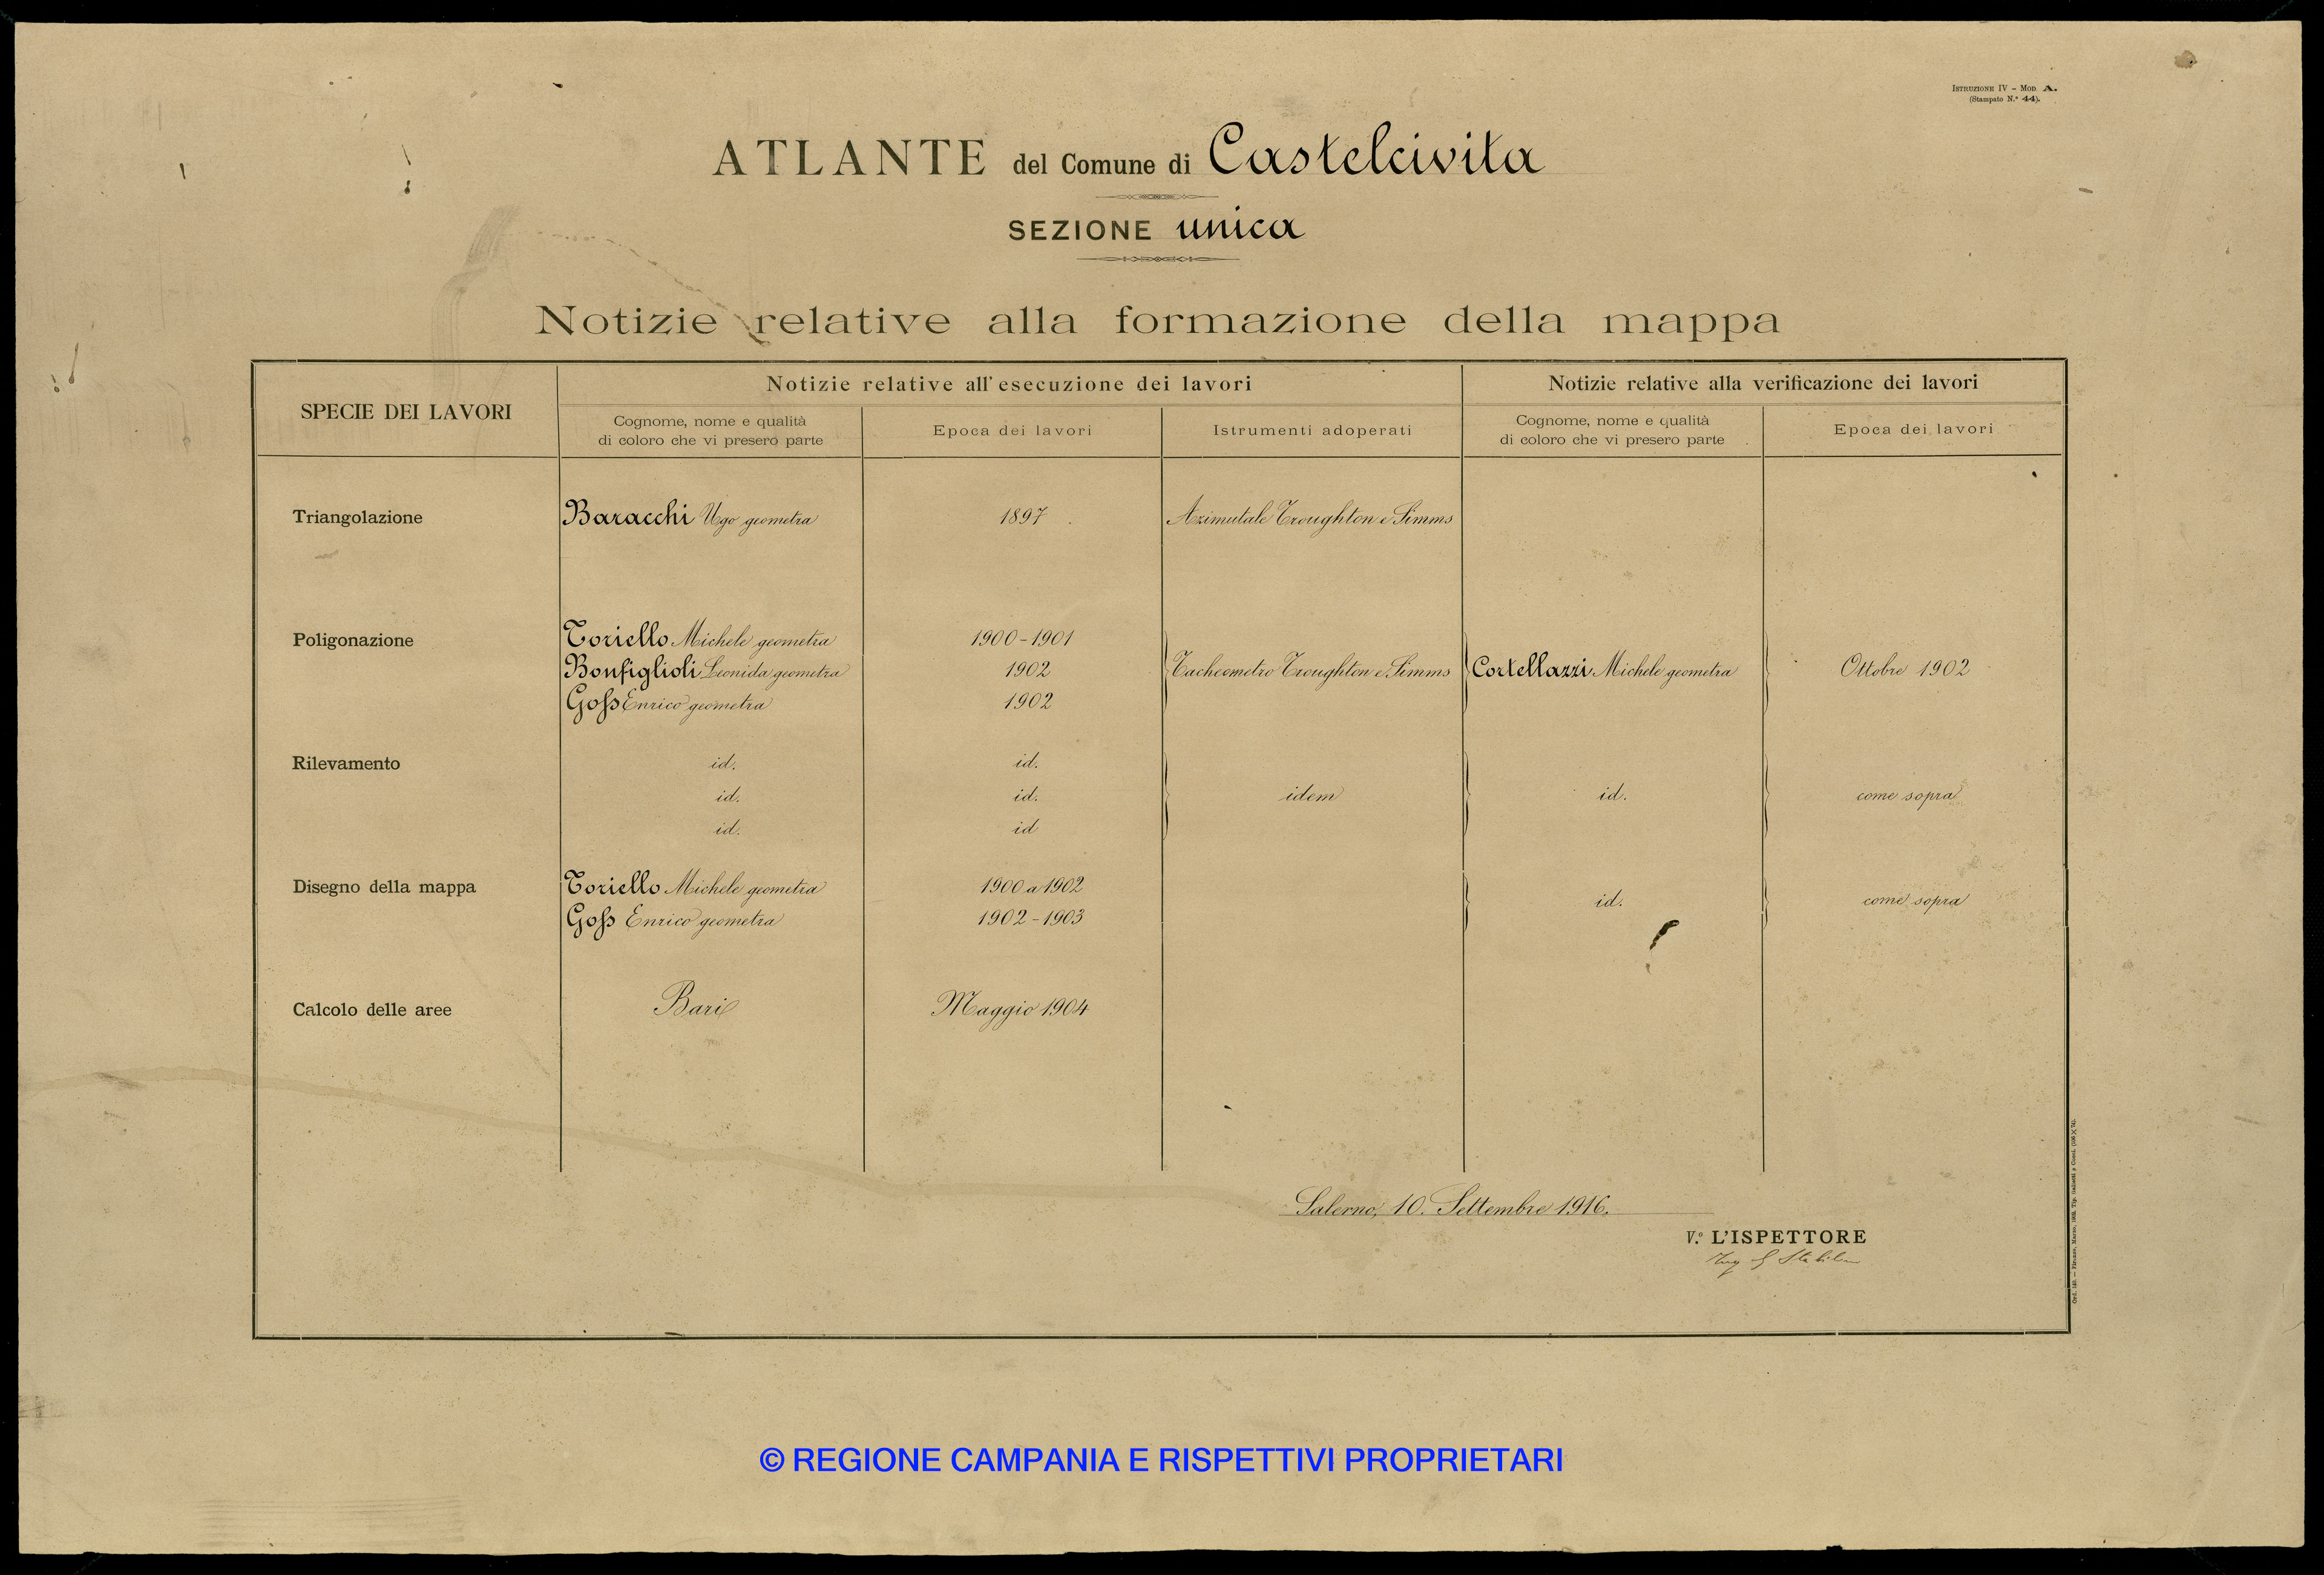 ISTRUZIONE IV – MOD. A.
(Stampato N.° 44).
ATLANTE del Comune di Castelcivita
SEZIONE unica
Notizie relative alla formazione della mappa
SPECIE DEI LAVORI
Notizie relative all'esecuzione dei lavori
Notizie relative alla verificazione dei lavori
Cognome, nome e qualità
di coloro che vi presero parte
Epoca dei lavori
Istrumenti adoperati
Cognome, nome e qualità
di coloro che vi presero parte
Epoca dei lavori
Triangolazione Baracchi Ugo geometra 1897 Azimutale Troughton e Simms
Poligonazione Toriello Michele geometra 1900-1901
Bonfiglioli Leonida geometra 1902 Tacheometro Troughton e Simms Cortellazzi Michele geometra Ottobre 1902
Goſs Enrico geometra 1902
Rilevamento id. id.
id. id. idem id. come sopra
id. id
Disegno della mappa Toriello Michele geometra 1900 a 1902
id. come sopra
Goſs Enrico geometra 1902-1903
Calcolo delle aree Bari Maggio 1904
Salerno, 10. Settembre 1916.
V.° L'ISPETTORE
© REGIONE CAMPANIA E RISPETTIVI PROPRIETARI